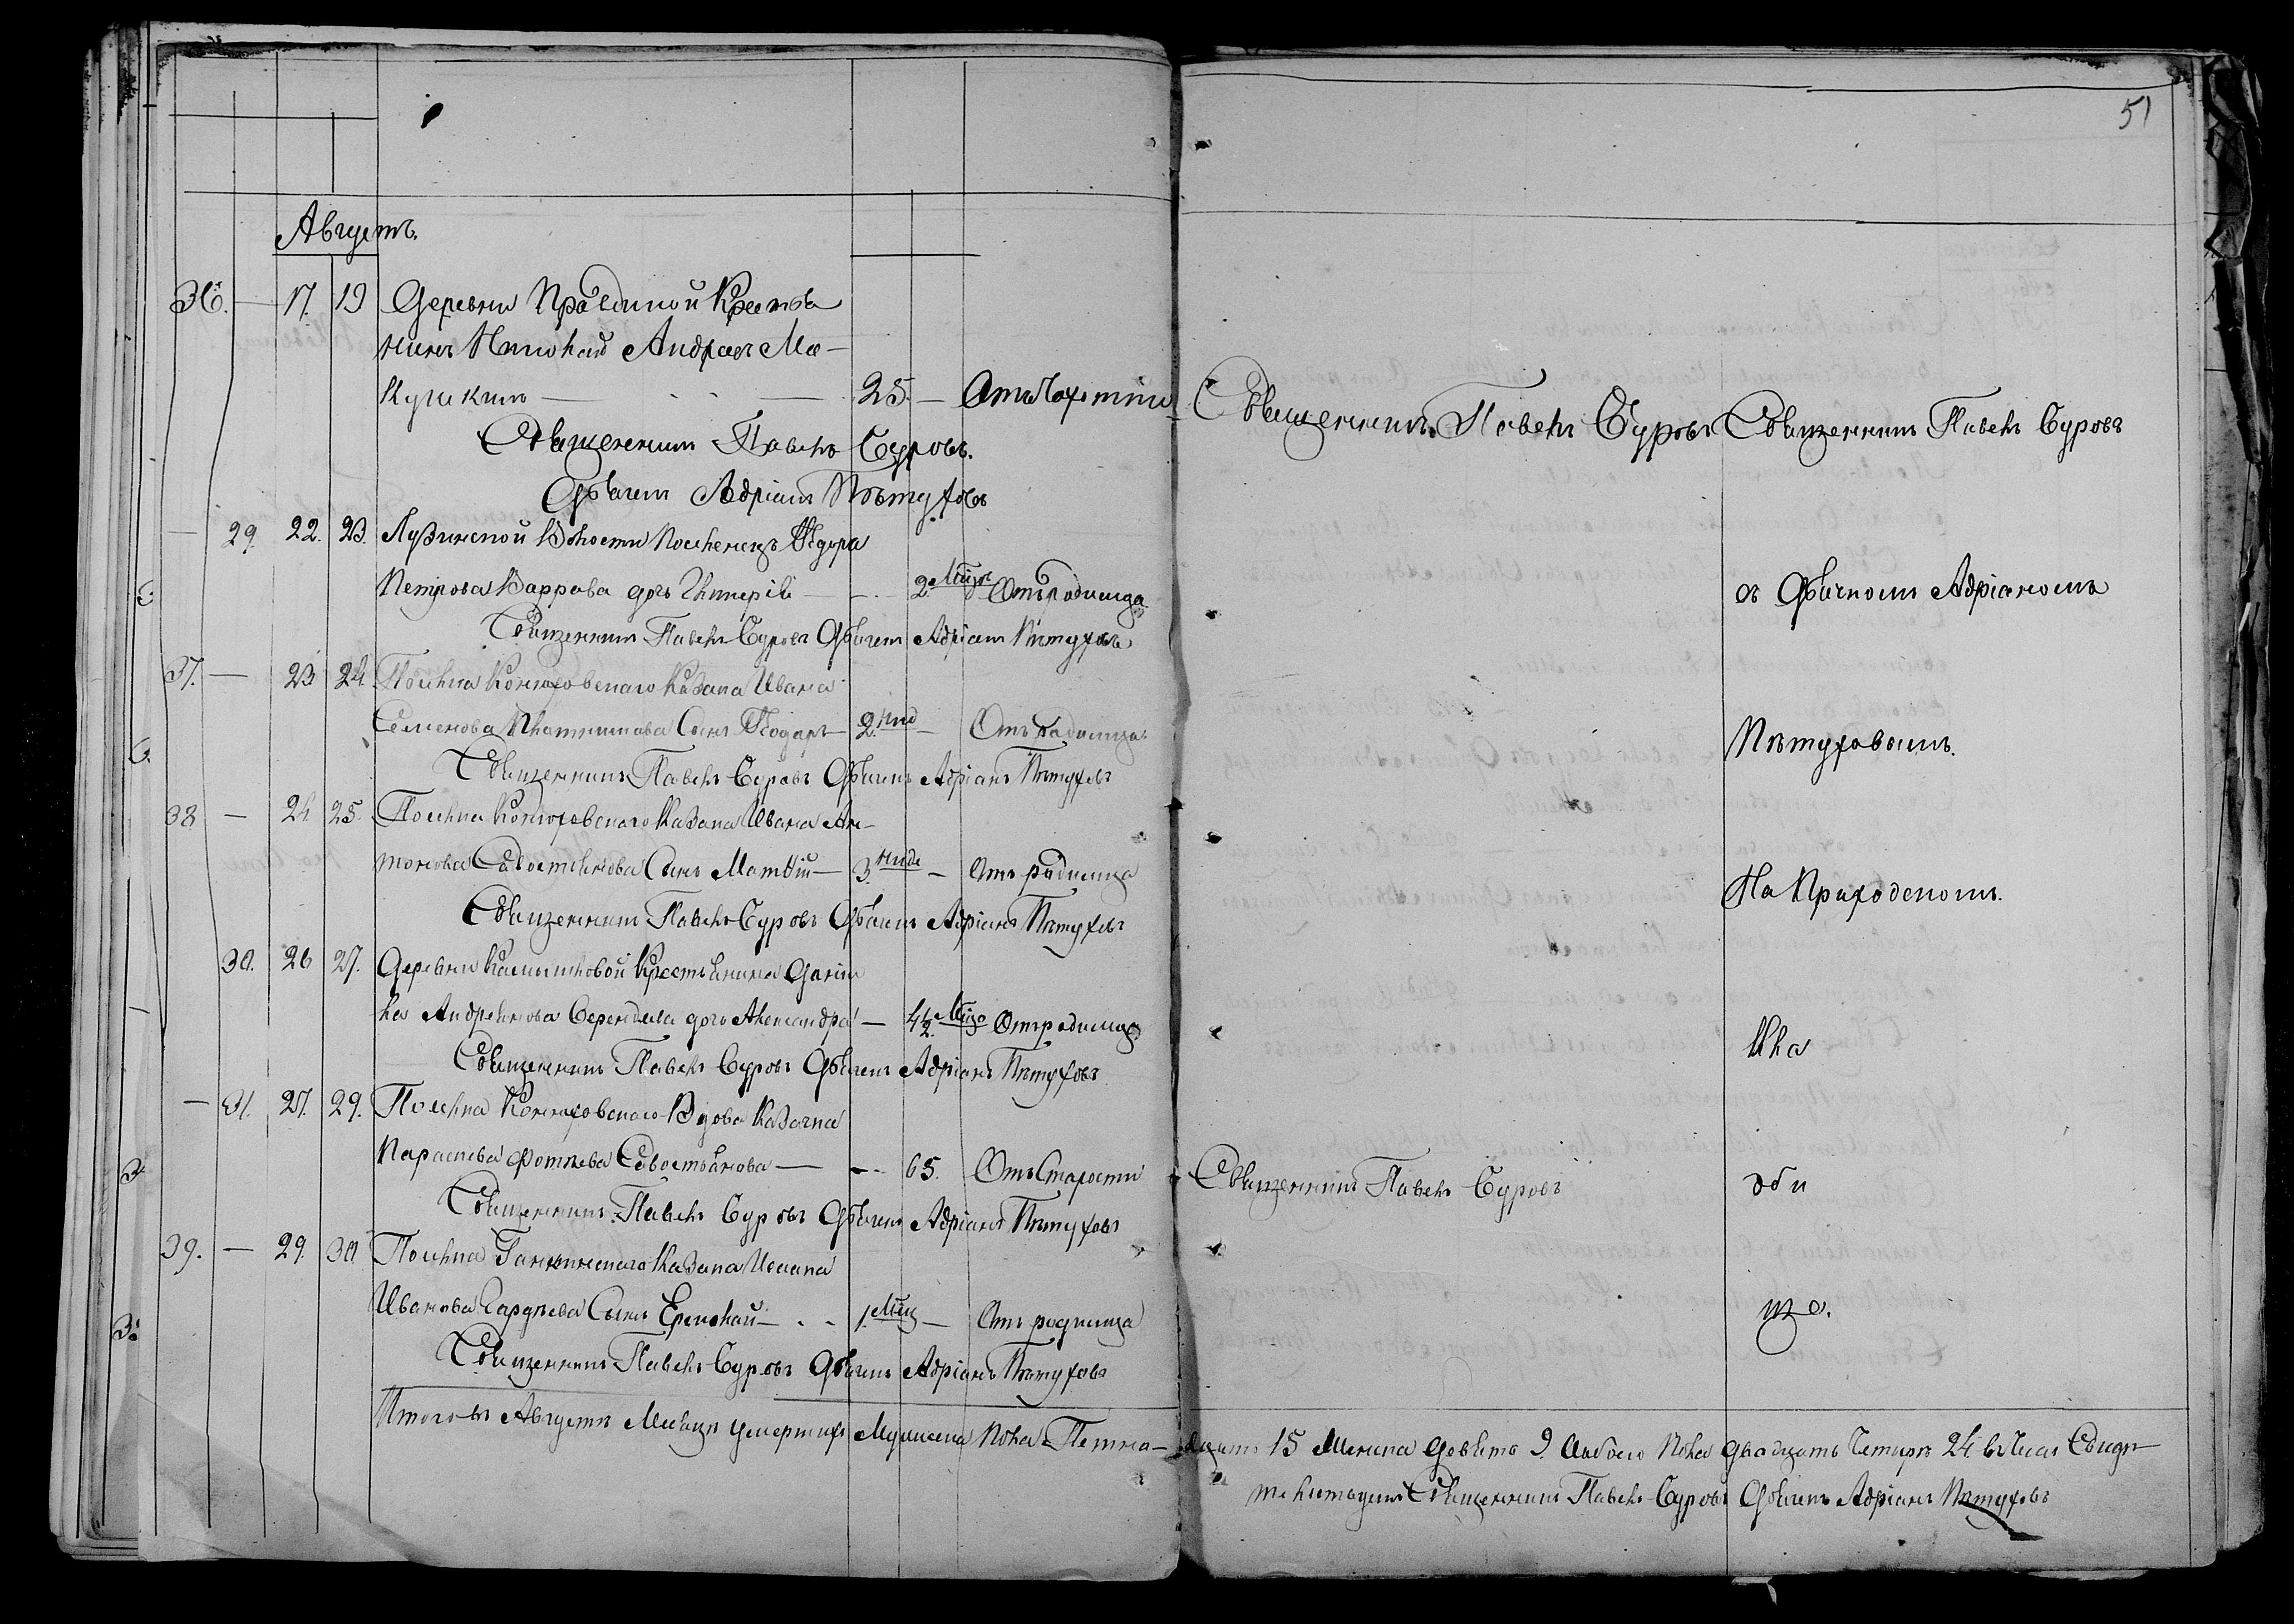 51
Августъ.
36. — 17. 19 Деревни Крестья
нинъ Николай Андреевъ Ма-
кушкинъ — 25. — Отъ чахотки Священникъ Павелъ Суровъ Священникъ Павелъ Суровъ
Священникъ Павелъ Суровъ.
Дьячекъ Адріанъ Пѣтуховъ
— 29. 22. 23. Лузинской Волости Поселенецъ Ѳедора
Петрова дочь Гликерія — 2. Мѣся Отъ родимца съ Дьячкомъ Адріаномъ
Священникъ Павелъ Суровъ Дьячекъ Адріанъ Пѣтуховъ
37. — 23 24. Поселка Конюховскаго Казака Ивана
Семенова Сынъ Ѳедоръ — 2. нед — Отъ родимца Пѣтуховымъ.
Священникъ Павелъ Суровъ Дьячекъ Адріанъ Пѣтуховъ
38 — 24 25. Поселка Конюховскаго Казака Ивана Ан-
тонова Севостьянова Сынъ Матвій — 3. неде — Отъ родимца На Приходскомъ
Священникъ Павелъ Суровъ Дьячекъ Адріанъ Пѣтуховъ
30. 26 27. Деревни Камышловой Крестьянина Дании
ла Андреянова дочь Александра — 4 1/2. Мѣся Отъ родимца Кла
Священникъ Павелъ Суровъ Дьячекъ Адріанъ Пѣтуховъ
— 31. 27. 29. Поселка Конюховскаго Вдова Казачка
Параскева Фотіева Севостьянова — 65. Отъ Старости Священникъ Павелъ Суровъ дби
Священникъ Павелъ Суровъ Дьячекъ Адріанъ Пѣтуховъ
39. — 29. 30 Поселка Ганькинскаго Казака
Иванова Сынъ Ермолай — 1. Мѣся — Отъ родимца ще.
Священникъ Павелъ Суровъ Дьячекъ Адріанъ Пѣтуховъ
Итого въ Августѣ Мѣсяцѣ умершихъ Мужеска Пола Пятна- дцать 15 Женска Девять 9. Обоего Пола Двадцать Четыре 24. въ чемъ Свидѣ-
тельствуемъ Священникъ Павелъ Суровъ Дьячекъ Адріанъ Пѣтуховъ